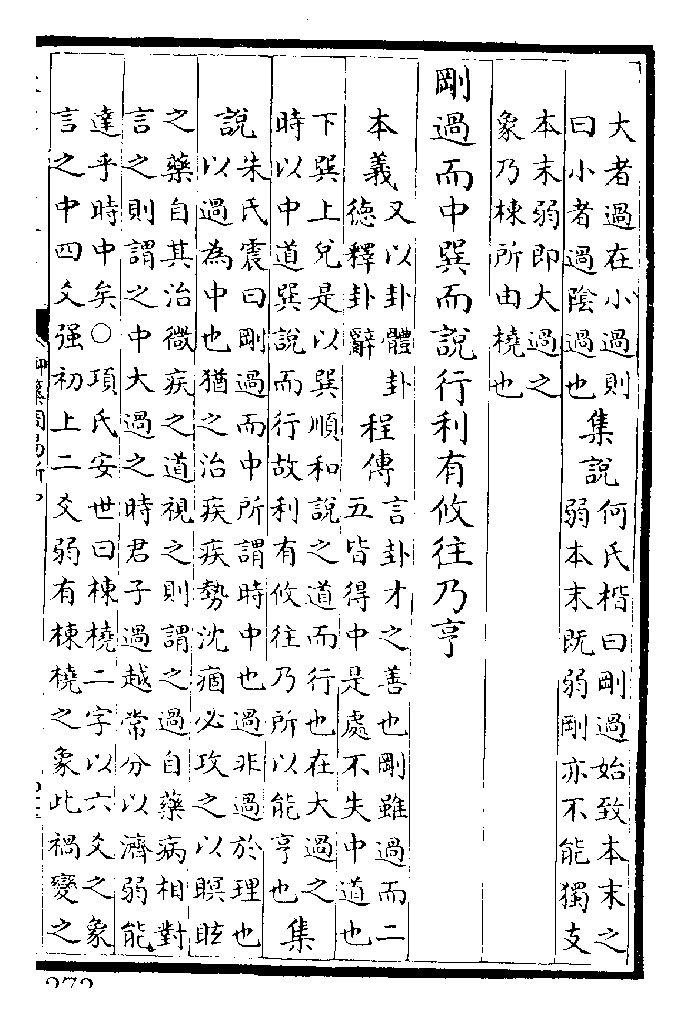 大者過在小過則
曰小者過陰過也
集說
何氏楷曰剛過始致本末之
弱本末既弱剛亦不能獨支
本末弱即大過之
象乃棟所由橈也
剛過而中巽而說行利有攸往乃亨
本義
又以卦體卦
德釋卦辭
程傳
言卦才之善也剛雖過而二
五皆得中是處不失中道也
下巽上兌是以巽順和說之道而行也在大過之
時以中道巽說而行故利有攸往乃所以能亨也
集
說
朱氏震曰剛過而中所謂時中也過非過於理也
以過為中也猶之治疾疾勢沈痼必攻之以瞑眩
之藥自其治微疾之道視之則謂之過自藥病相對
言之則謂之中大過之時君子過越常分以濟弱能
達乎時中矣○項氏安世曰棟橈二字以六爻之象
言之中四爻强初上二爻弱有棟橈之象此禍變之